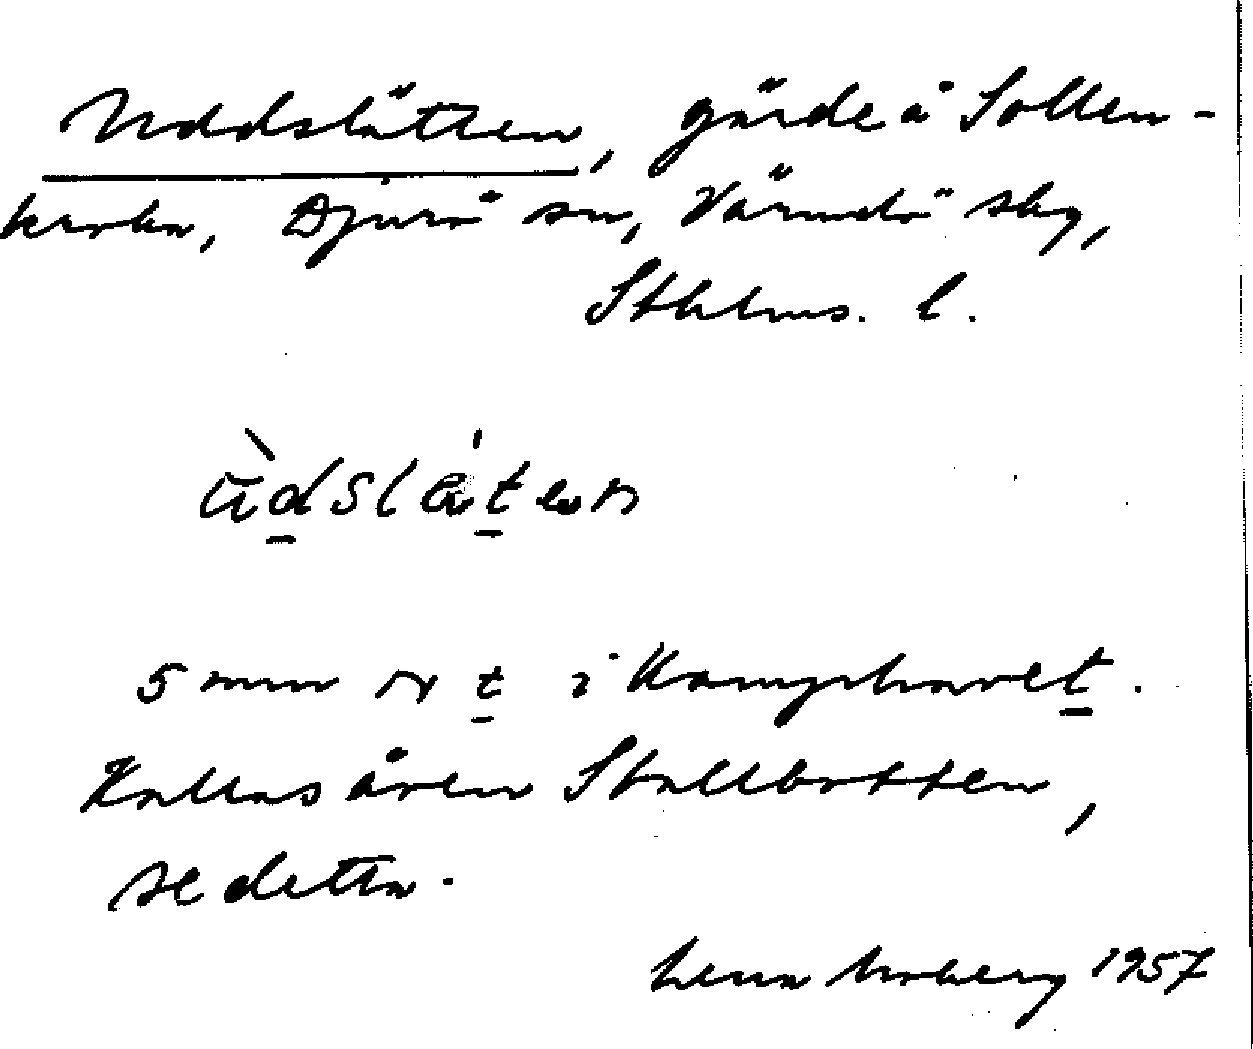 Uddslätten, gärde å Sollen-
kroka, Djurö sn, Värmdö skg,
Sthlms. l.
ùdslä́ten
5 mm N t i Kamphavet.
Kallas även Stallbotten,
se detta.
Lena Moberg 1957